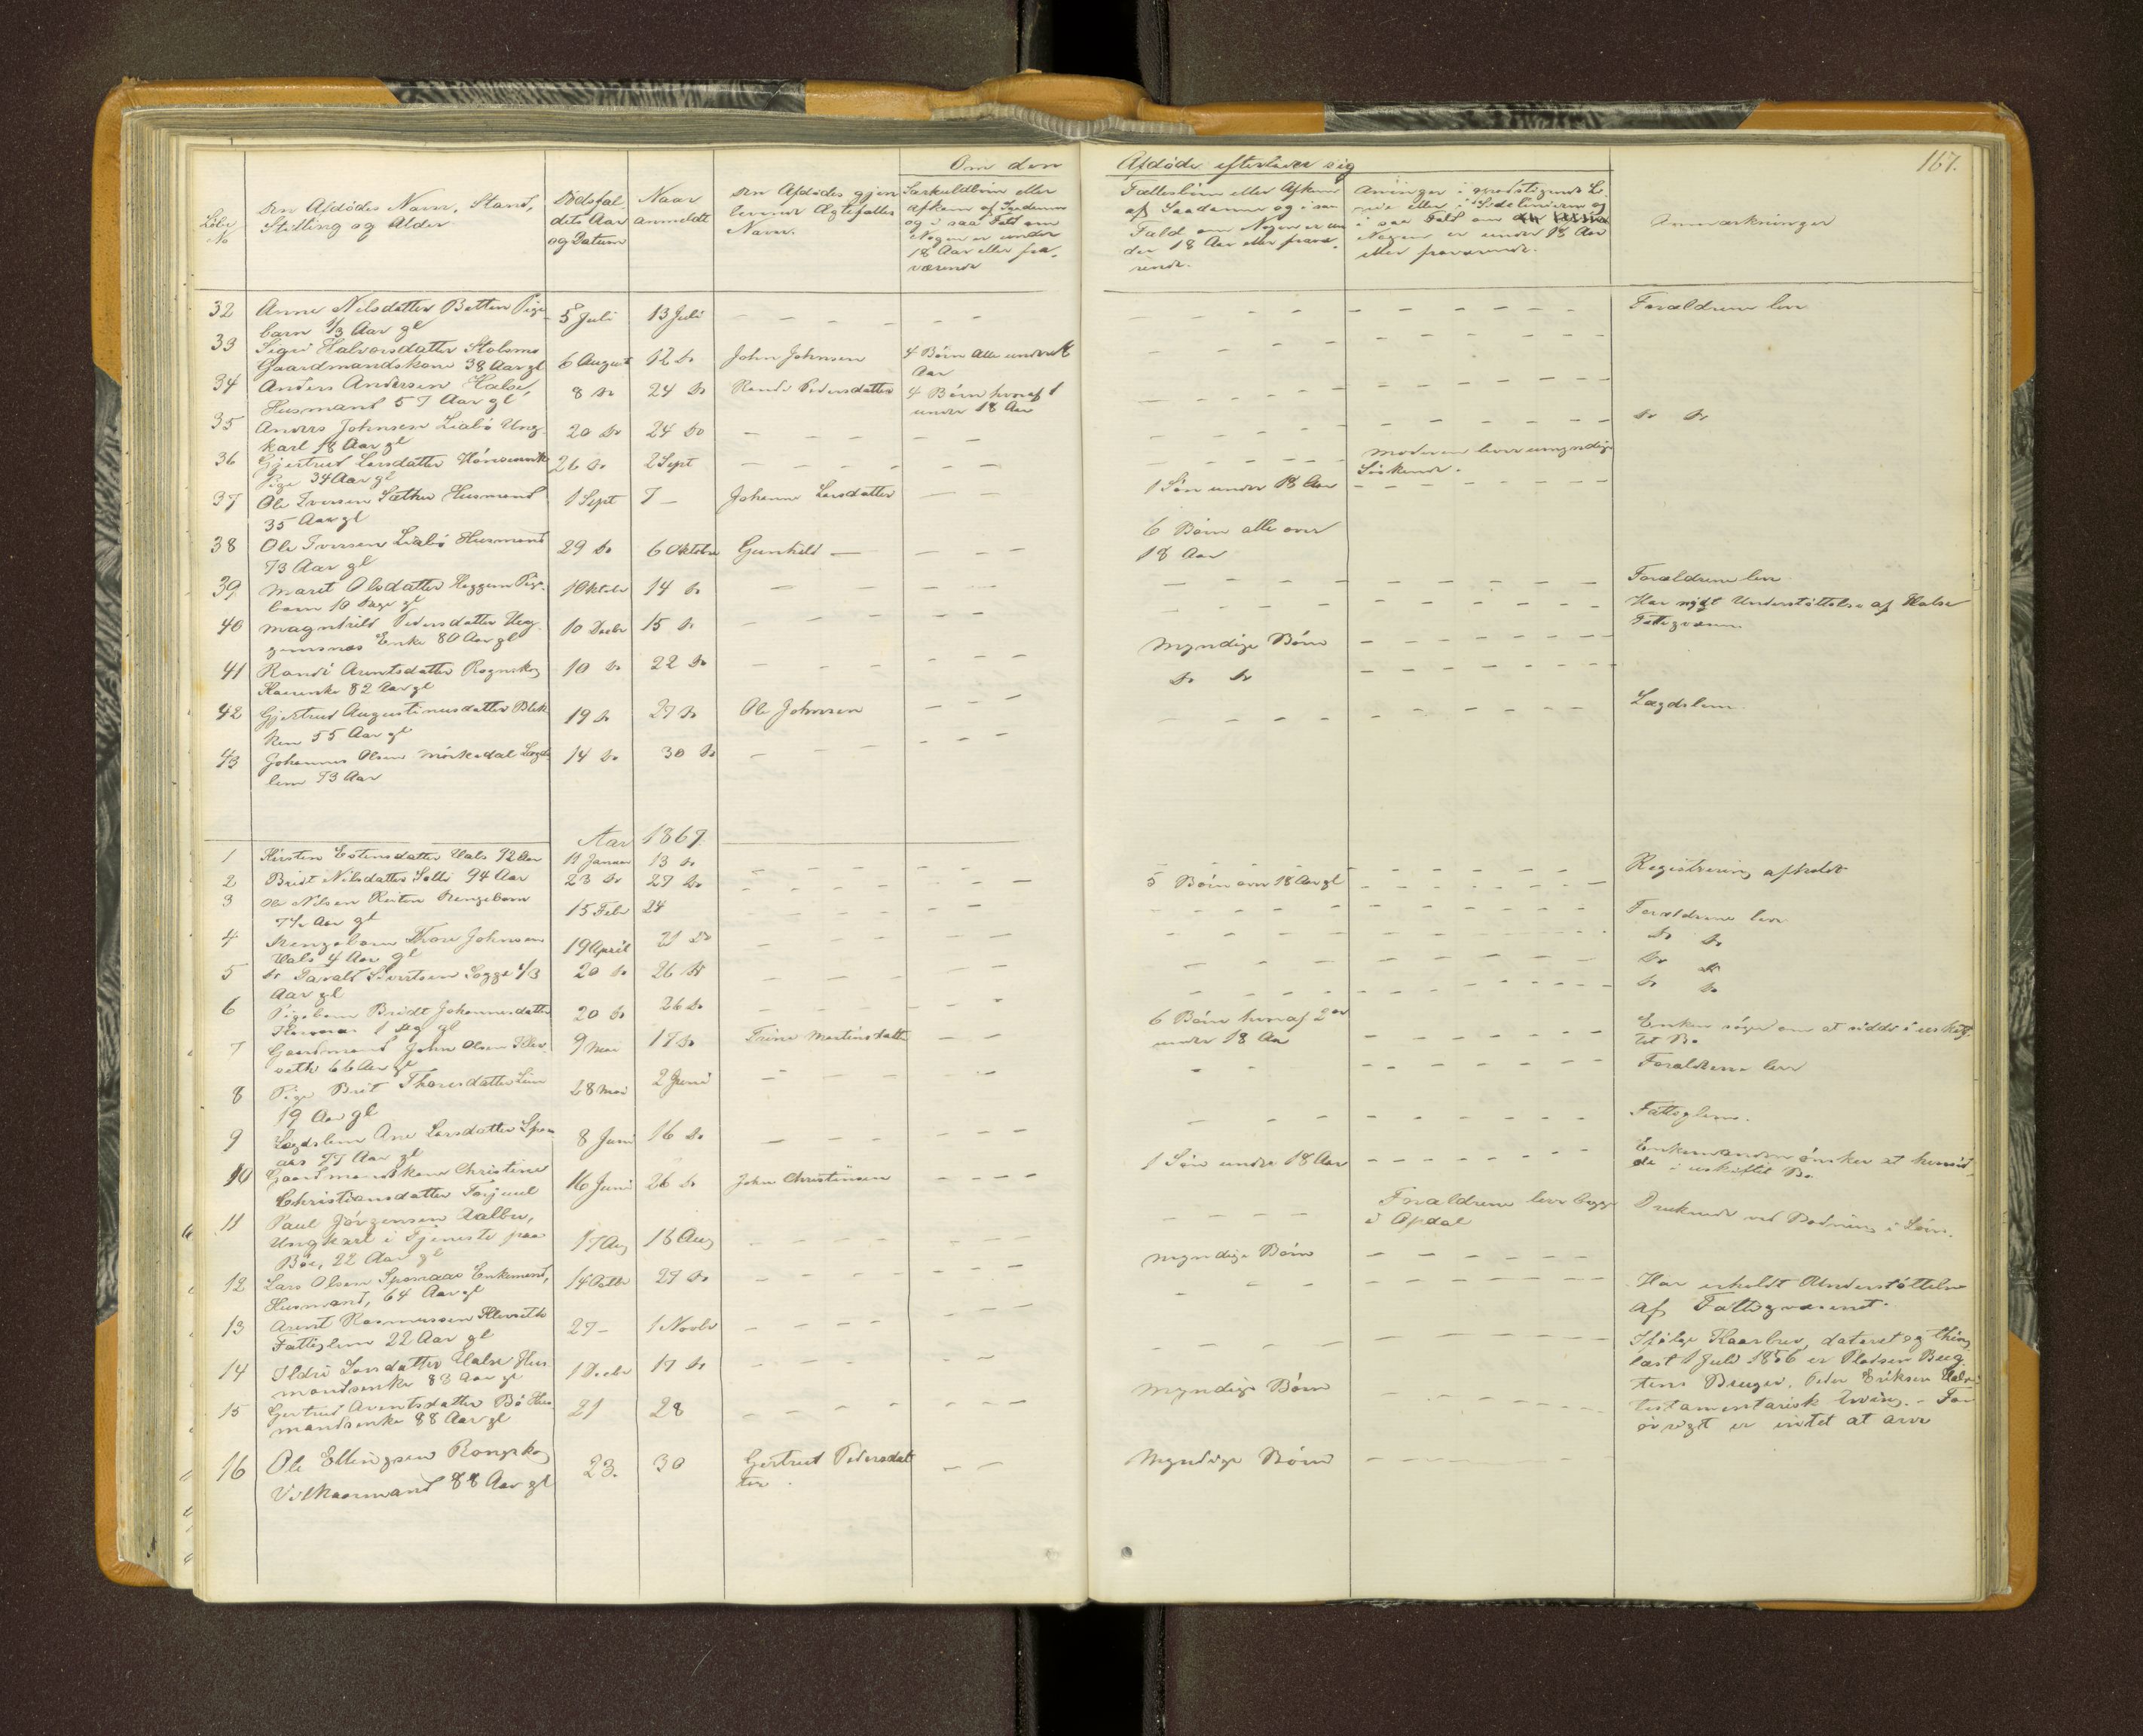 Om den Afdöde efterlever sig
167.
Löbe No
Den Afdödes Navn, Stand,
Stilling og Alder
Dödsfal
dets Aar
og Datum
Naar
anmeldt
Den Afdödes gjen
levende Ægtefælles
Navn.
Særkuldbörn eller
Afkom af Saadanne
og i saa Fald om
Nogen er under
18 Aar eller fra-
værende
Fællesbörn eller Afkom
af Saadanne og i saa
Fald om Nogen er un
der 18 Aar eller fravæ-
rende.
Arvinger i opadstigende Li-
nie eller i Sidelinierne og
i saa Fald om
Nogen er under 18 Aar
eller fraværende.
Anmærkninger
32 Anne Nilsdatter Botten Pige- 5 Juli 13 Juli Forældrene lever
barn 1/3 Aar gl
33 Sigri Halvorsdatter Stolsmo 6 August 12 do John Johnsen 4 Börn alle under
Gaardmandskone 38 Aar gl Aar
34 Anders Andersen Halse, 8 do 24 do Randi Pedersdatter 4 Börn hvoraf 1
Husmand 57 Aar gl under 18 Aar
35 Anders Johnsen Liabö Ung- 20 do 24 do do do
karl 18 Aar gl
36 Gjertrud Larsdatter 26 do 2 Sept Moderen lever umyndige
Pige 34 Aar gl Söskende.
37 Ole Iversen Sæther Husmand 1 Sept 7 — Johanne Larsdatter 1 Sön under 18 Aar
35 Aar gl
38 Ole Iversen Liabö Husmand 29 do 6 Oktober Gunhild — 6 Börn alle over
73 Aar gl 18 Aar
39 Marit Olsdatter Heggem Pige- 1 Oktober 14 do Forældrene lever
barn 10 Dage gl
40 Magnhild Pedersdatter Heg- 10 Decbr 15 do Myndige Börn Har nydt Understöttelse af Halse
gemsnæs Enke 80 Aar gl Fattigvæsen
41 Randi Arentsdatter Rognskog 10 do 22 do do do
Kaarenke 82 Aar gl
42 Gjertrud Augustinusdatter Blek 19 do 27 do Ole Johnsen Lægdslem
ken 55 Aar gl
43 Johannes Olsen Mörkedal Lægds- 14 do 30 do
lem 73 Aar
Aar 1867.
1 Kirsten Estensdatter Vals 72 Aar 11 Januar 13 do
2 Bridt Nilsdatter Solli 94 Aar 23 do 27 do 5 Börn over 18 Aar gl Registrering afholdt
3 Ole Nilsen Reiten Drengebarn 15 Febr 24 Forældrene lever
7½ Aar gl
4 Drengebarn Thore Johnsen 19 April 21 do do do
Vals 4 Aar gl
5 do Sivertsen Sogge 1/3 20 do 26 do do do
Aar gl
6 Pigebarn Bridt Johannesdatter 20 do 26 do do do
1 Dag gl
7 Gaardmand John Olsen Klev- 9 Mai 17 do Trine Martinsdatter 6 Börn hvoraf 2 er Enken söger om at sidde i uskif
seth 66 Aar gl under 18 Aar tet Bo
8 Pige Brit Thoresdatter 28 Mai 2 Juni Forældrene lever
19 Aar gl
9 Lægdslem Ane Larsdatter 8 Juni 16 do Fattiglem.
77 Aar gl
10 Gaardmandskone Christine 16 Juni 26 do John Christensen 1 Sön under 18 Aar Enkemanden önsker at hensid
Christiansdatter Torjuul de i uskiftet Bo.
11 Paul Jörgensen Aalbu, 17 Aug 18 Aug Forældrene lever begge Druknede ved Badning i Söen.
Ungkarl i Tjeneste paa i Opdal
Böe, 22 Aar gl
12 Lars Olsen Enkemand, 14 Octbr 27 do Myndige Börn
Husmand, 64 Aar gl
13 Arent Rasmussen Klevseth 27 — 1 Novbr Har erholdt Understöttelse
Fattiglem 22 Aar gl af Fattigvæsenet.
14 Ildri Larsdatter Halse Hus- 1 Decbr 17 do Ifölge Kaarbrev, dateret og thing
mandsenke 83 Aar gl læst 1 Juli 1856 er Pladsen
15 Gertrud Arentsdatter Bö Hus- 21 28 Myndige Börn tens Bruger, Peder Eriksen Halse
mandsenke 88 Aar gl testamentarisk Arving. - For
övrigt er intet at arve
16 Ole Ellingsen Rognskog 23. 30 Gertrud Pedersdat Myndige Börn
Vilkaarmand 88 Aar gl ter